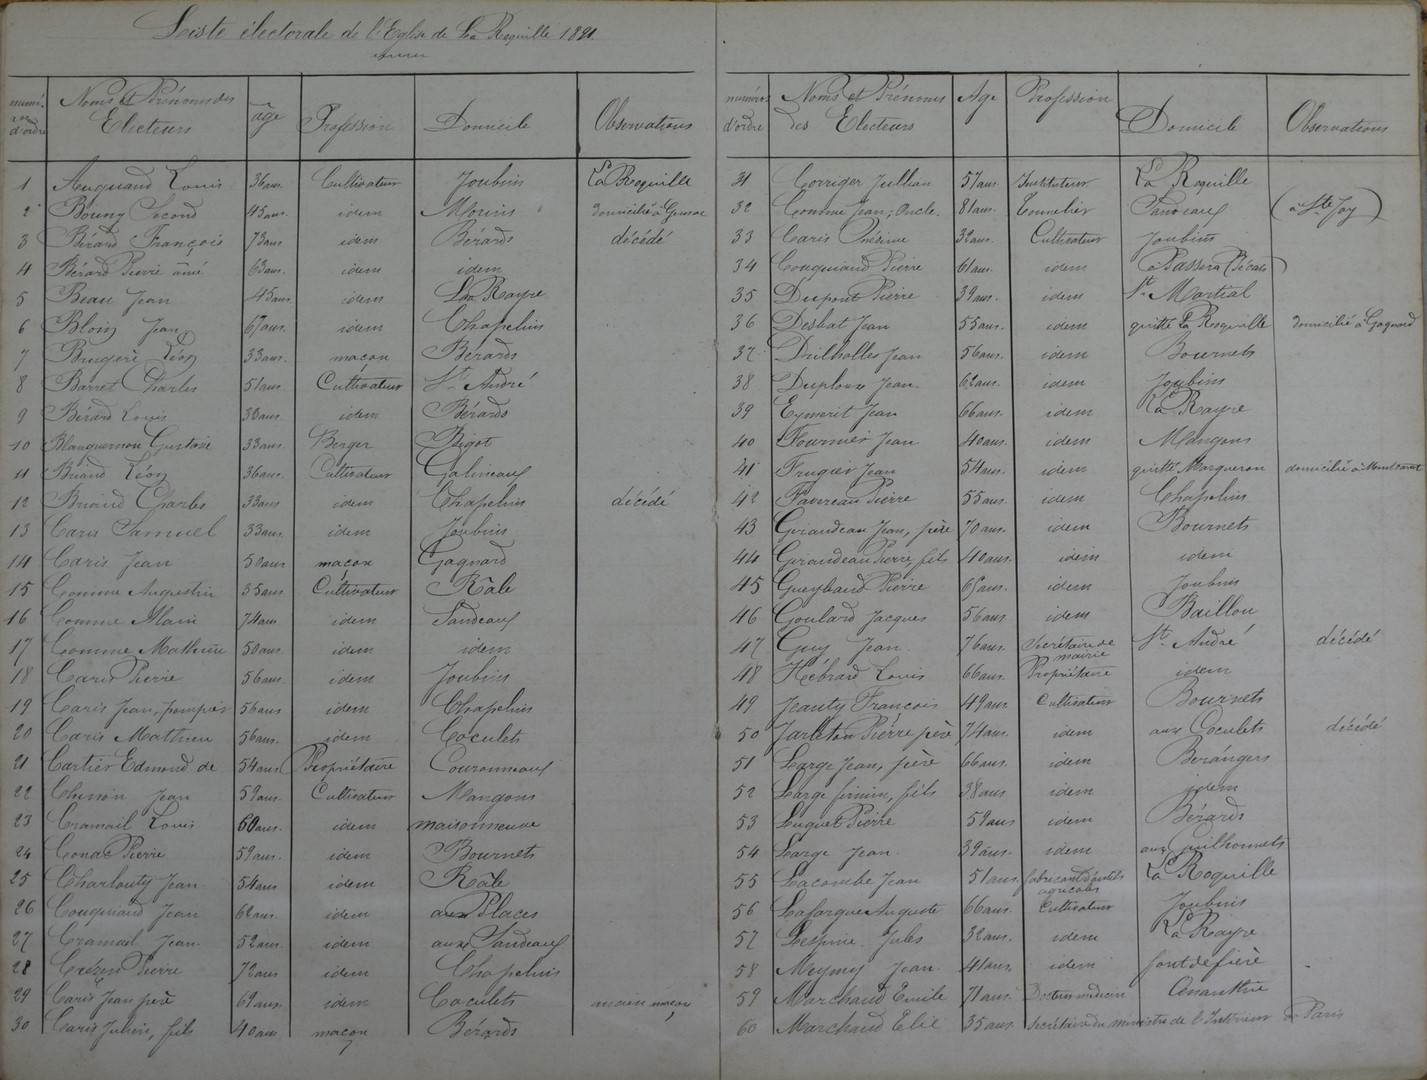 Liste électorale de l'Eglise de La Roquille 1891.
numéros d'ordre Noms et Prénoms des Electeurs âge Profession Domicile Observations
1 Auguand Louis 36 ans Cultivateur Joubins La Roquille
2 Bouny Second 45 ans. idem Morins domicilié à Gensac
3 Bérard François 73 ans idem Bérards décédé
4 Bérard Pierre aîné 63 ans. idem idem
5 Beau Jean 45 ans. idem La Rayre
6 Bloin Jean 67 ans. idem Chapelins
7 Brugère Léon 33 ans. maçon Bérards
8 Barret Charles 51 ans. Cultivateur St. André
9 Bérard Louis 33 ans. idem Bérards
10 Gustave 33 ans. Berger Bigot
11 Briand Léon 36 ans. Cultivateur Galineaux
12 Briand Charles 33 ans idem Chapelins décédé
13 Caris Samuel 33 ans. idem Joubins
14 Caris Jean 50 ans maçon Gagnard
15 Comme Augustin 35 ans. Cultivateur Râle
16 Comme Alain 74 ans idem Sandeaux
17 Comme Mathieu 50 ans. idem idem
18 Caris Pierre 56 ans. idem Joubins
19 Caris Jean, pompier 56 ans idem Chapelins
20 Caris Mathieu 56 ans. idem Coculets
21 Cartier Edmond de 54 ans Propriétaire Couronneaux
22 Chinon Jean 59 ans. Cultivateur Mangons
23 Cramail Louis 60 ans. idem maisonneuve
24 Conac Pierre 59 ans. idem Bournets
25 Charlouty Jean 54 ans idem Râle
26 Couquiaud Jean 62 ans. idem aux Places
27 Cramail Jean. 52 ans. idem aux Sandeaux
28 Crézen Pierre 72 ans idem Chapelins
29 Caris Jean père 69 ans. idem Coculets ancien maçon
30 Caris Julien, fils 40 ans maçon Bérards
numéros d'ordre Noms et Prénoms des Electeurs Age Profession Domicile Observations
31 Corriger Jullian 57 ans Instituteur La Roquille
32 Comme Jean, Oncle. 81 ans. Tonnelier Sandeaux (à Ste Foy)
33 Caris Onésime 32 ans. Cultivateur Joubins
34 Couquiaud Pierre 61 ans. idem
35 Dupont Pierre 39 ans. idem St. Martial
36 Desbat Jean 55 ans. idem quitté La Roquille domicilié à Gagnard
37 Drilholles Jean 56 ans. idem Bournets
38 Duploux Jean. 62 ans. idem Joubins
39 Eymerit Jean 66 ans. idem La Rayre
40 Fournier Jean 40 ans. idem Mangons
41 Frugier Jean 54 ans. idem quitté Margueron domicilié à
42 Favereau Pierre 55 ans idem Chapelins
43 Giraudeau Jean, père 70 ans. idem Bournets
44 Giraudeau Pierre, fils 40 ans. idem idem
45 Gueybaud Pierre 65 ans. idem Joubins
46 Goulard Jacques 56 ans. idem Baillou
47 Guy Jean 76 ans. Secrétaire de mairie St. André décédé
48 Hébrard Louis 66 ans. Propriétaire idem
49 Jeauty François 49 ans Cultivateur Bournets
50 Jarleton Pierre père 74 ans. idem aux Coculets décédé
51 Large Jean, père 66 ans. idem Bérangers
52 Large firmin, fils 38 ans idem idem
53 Luquet Pierre 59 ans idem Bérards
54 Large Jean 39 ans. idem aux Guilhonnets
55 Lacombe Jean 51 ans. fabricant d'outils agricoles La Roquille
56 Lafargue Auguste 66 ans. Cultivateur Joubins
57 Lespine Jules 32 ans. idem La Rayre
58 Meymy Jean 41 ans. idem
59 Marchand Emile 71 ans. Docteur médecin
60 Marchand Elie 35 ans. Secrétaire du ministre de l'Intérieur à Paris